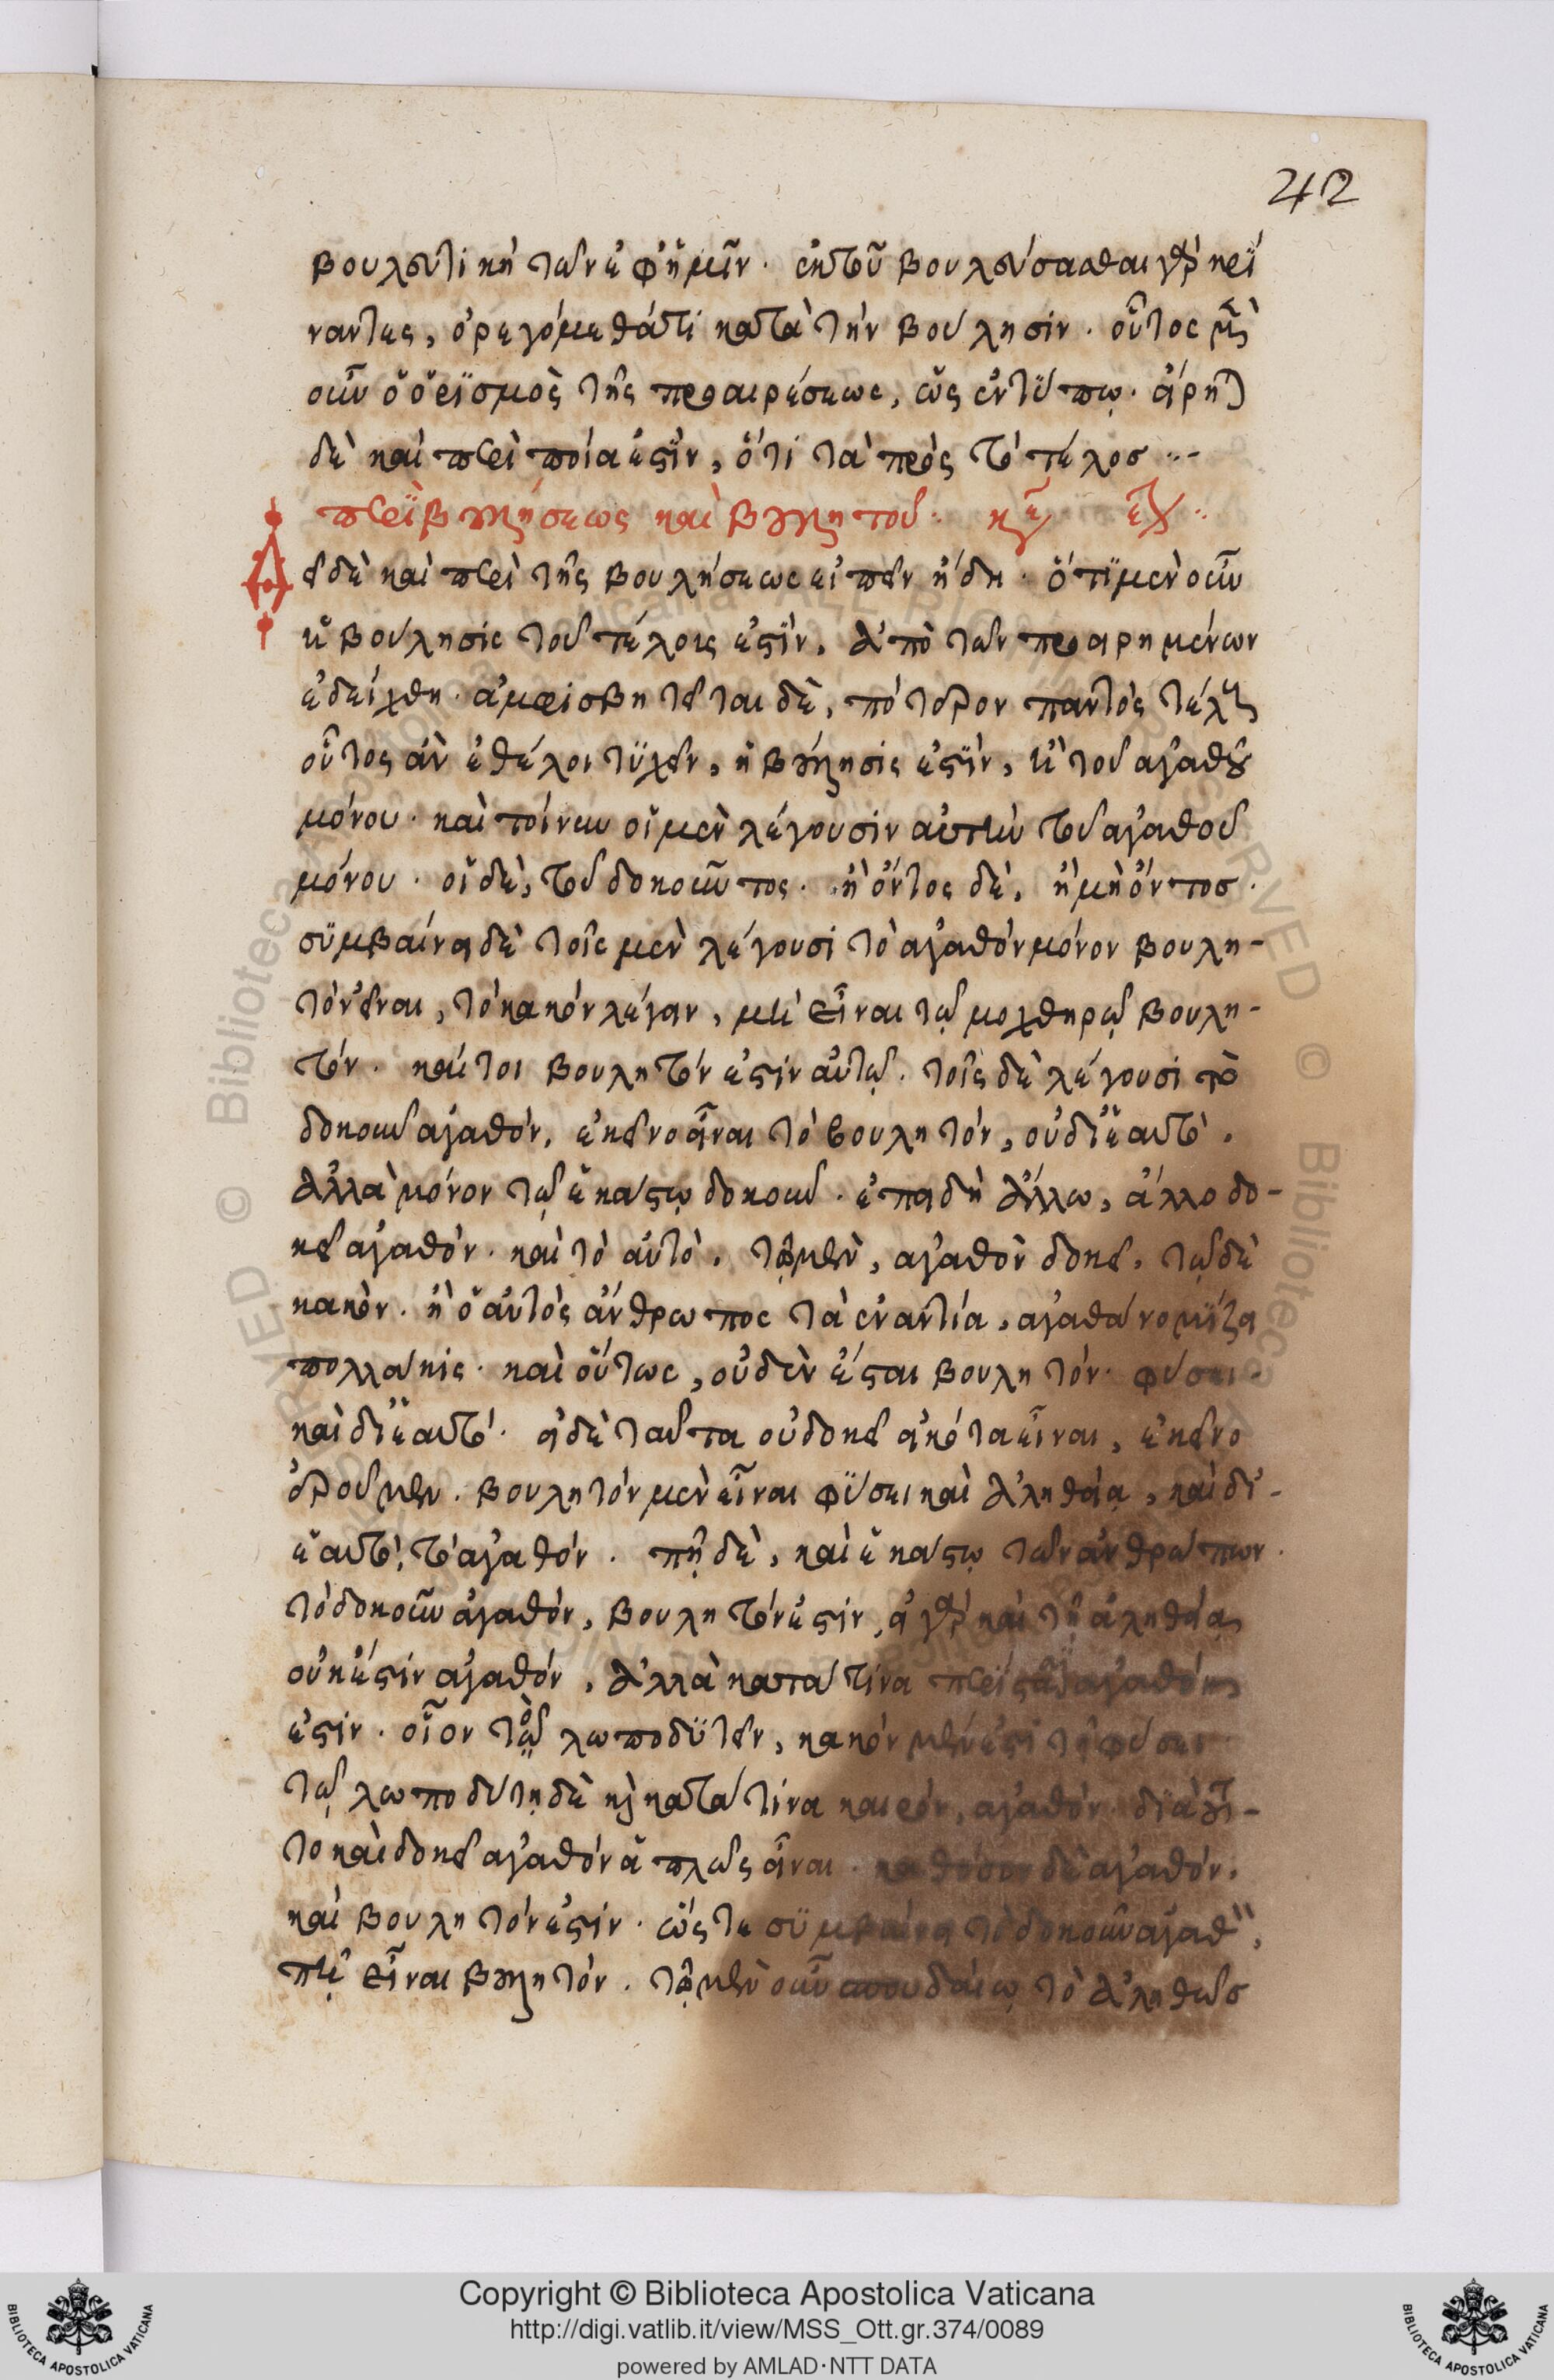 42
βουλευτικὴ τῶν ἐφ' ἡμῖν. ἐκ τοῦ βουλεύσασθαι γὰρ κρί
ναντες, ὀρεγόμεθά τι κατὰ τὴν βούλησιν. οὗτος μὲν
οὖν ὁ ὁρισμὸς τῆς προαιρέσεως, ὡς ἐν τύπῳ. εἴρηται
δὲ καὶ περὶ ποῖά ἐστιν, ὅτι τὰ πρὸς τὸ τέλος ..-
περὶ βουλήσεως καὶ βουλητοῦ.
δεῖ δὲ καὶ περὶ τῆς βουλήσεως εἰπεῖν ἤδη. ὅτι μὲν οὖν
ἡ βούλησις τοῦ τέλους ἐστὶν, ἀπὸ τῶν προειρημένων
ἐδείχθη. ἀμφισβητεῖται δὲ, πότερον παντὸς τέλους
οὗτος ἂν ἐθέλοι τυχεῖν, ἡ βούλησίς ἐστιν, ἢ τοῦ ἀγαθοῦ
μόνου. καὶ τοίνυν οἱ μὲν λέγουσιν αὐτὴν τοῦ ἀγαθοῦ
μόνου. οἱ δὲ, τοῦ δοκοῦντος. ἢ ὄντος δὲ, ἢ μὴ ὄντος.
συμβαίνει δὲ τοῖς μὲν λέγουσι τὸ ἀγαθὸν μόνον βουλη-
τὸν εἶναι, τὸ κακὸν λέγειν, μὴ εἶναι τῷ μοχθηρῷ βουλη-
τόν. καίτοι βουλητόν ἐστιν αὐτῷ. τοῖς δὲ λέγουσι τὸ
δοκοῦν ἀγαθόν, ἐκεῖνο εἶναι τὸ βουλητόν, οὐ δι' ἑαυτὸ.
ἀλλὰ μόνον τῷ ἑκάστῳ δοκοῦν. ἐπειδὴ ἄλλῳ, ἄλλο δο-
κεῖ ἀγαθόν. καὶ τὸ αὐτὸ, τῷ μὲν, ἀγαθὸν δοκεῖ, τῷ δὲ
κακὸν. ἢ ὁ αὐτὸς ἄνθρωπος τὰ ἐναντία, ἀγαθὰ νομίζει
πολλάκις. καὶ οὕτως, οὐδὲν ἔσται βουλητόν φύσει.
καὶ δι' ἑαυτό. εἰ δὲ ταῦτα οὐ δοκεῖ εἰκότα εἶναι, ἐκεῖνο
ἐροῦμεν. βουλητὸν μὲν εἶναι φύσει καὶ ἀληθείᾳ, καὶ δι'-
ἑαυτὸ, τὸ ἀγαθόν. πῇ δὲ, καὶ ἑκάστῳ τῶν ἀνθρώπων.
τὸ δοκοῦν ἀγαθόν, βουλητόν ἐστιν, εἰ γὰρ καὶ τῇ ἀληθείᾳ
οὐκ ἔστιν ἀγαθόν, ἀλλὰ κατά τινα περίστασιν ἀγαθόν
ἐστιν. οἷον τὸ λωποδυτεῖν, κακὸν μέν ἐστι τῇ φύσει
τῷ λωποδύτῃ δὲ καὶ κατά τινα καιρόν, ἀγαθόν. διὰ τοῦ-
το καὶ δοκεῖ ἀγαθὸν ἁπλῶς εἶναι. καθόσον δὲ ἀγαθόν.
καὶ βουλητόν ἐστιν. ὥστε συμβαίνει τὸ δοκοῦν ἀγαθὸν,
πῇ εἶναι βουλητόν. τῷ μὲν οὖν σπουδαίῳ τὸ ἀληθῶς
Copyright © Biblioteca Apostolica Vaticana
http://digi.vatlib.it/view/MSS_Ott.gr.374/0089
powered by AMLAD·NTT DATA